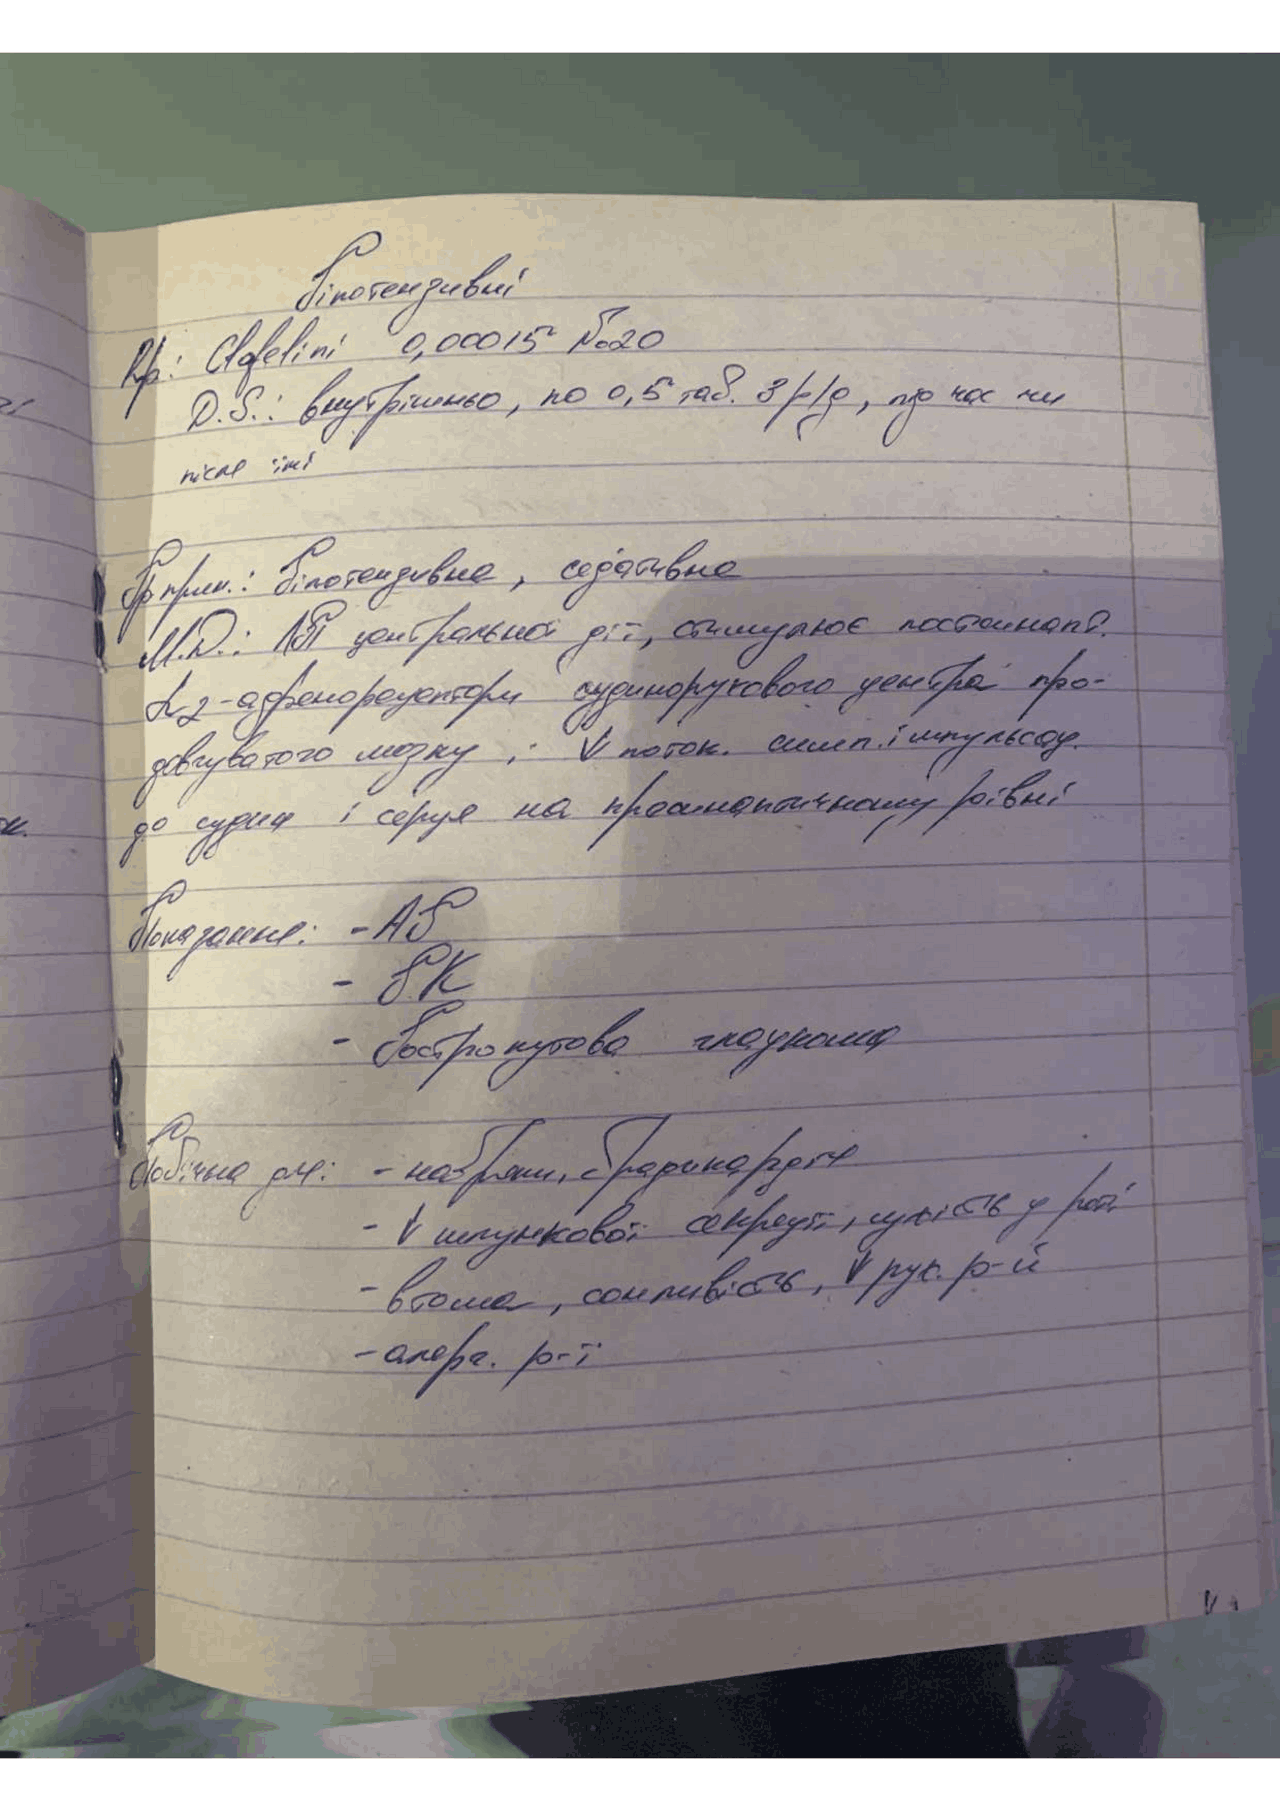 Гіпотензивні
Rp: Clofelini 0,00015 №20
D.S.: внутрішньо, по 0,5 таб. 3 р/д, під час чи
після їжі
Гіпотензивна, седативна
М.Д.: центральної дії, стимулює постсинапт.
α2-адренорецептори судинорухового центра про-
довгуватого мозку ; ↓ поток. симп. імпульсац.
до судин і серця на пресинаптичному рівні
Показання: - АГ
- ГК
- Гострокутова глаукома
Побічна дія: - набряки, брадикардія
- ↓ шлункової секреції, сухість у роті
- втома, сонливість, ↓ рух. р-й
- алерг. р-ї